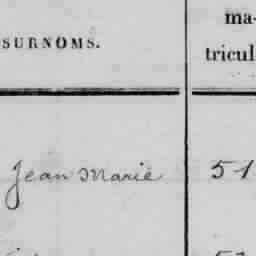 SURNOMS.
ma-
tricul
Jean Marie
51